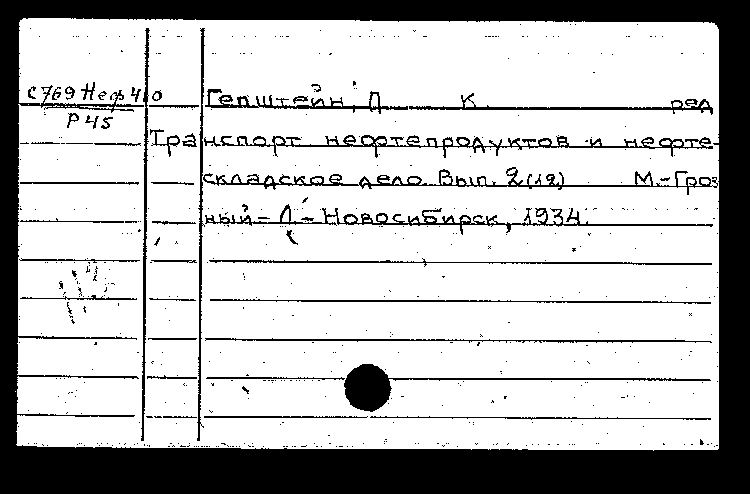 С769 Неф 410
Р45
Гепштейн, Д К ред
Транспорт нефтепродуктов и нефте-
складское дело. Вып. 2(12) М.-Гроз
ный-Л.-Новосибирск, 1934.